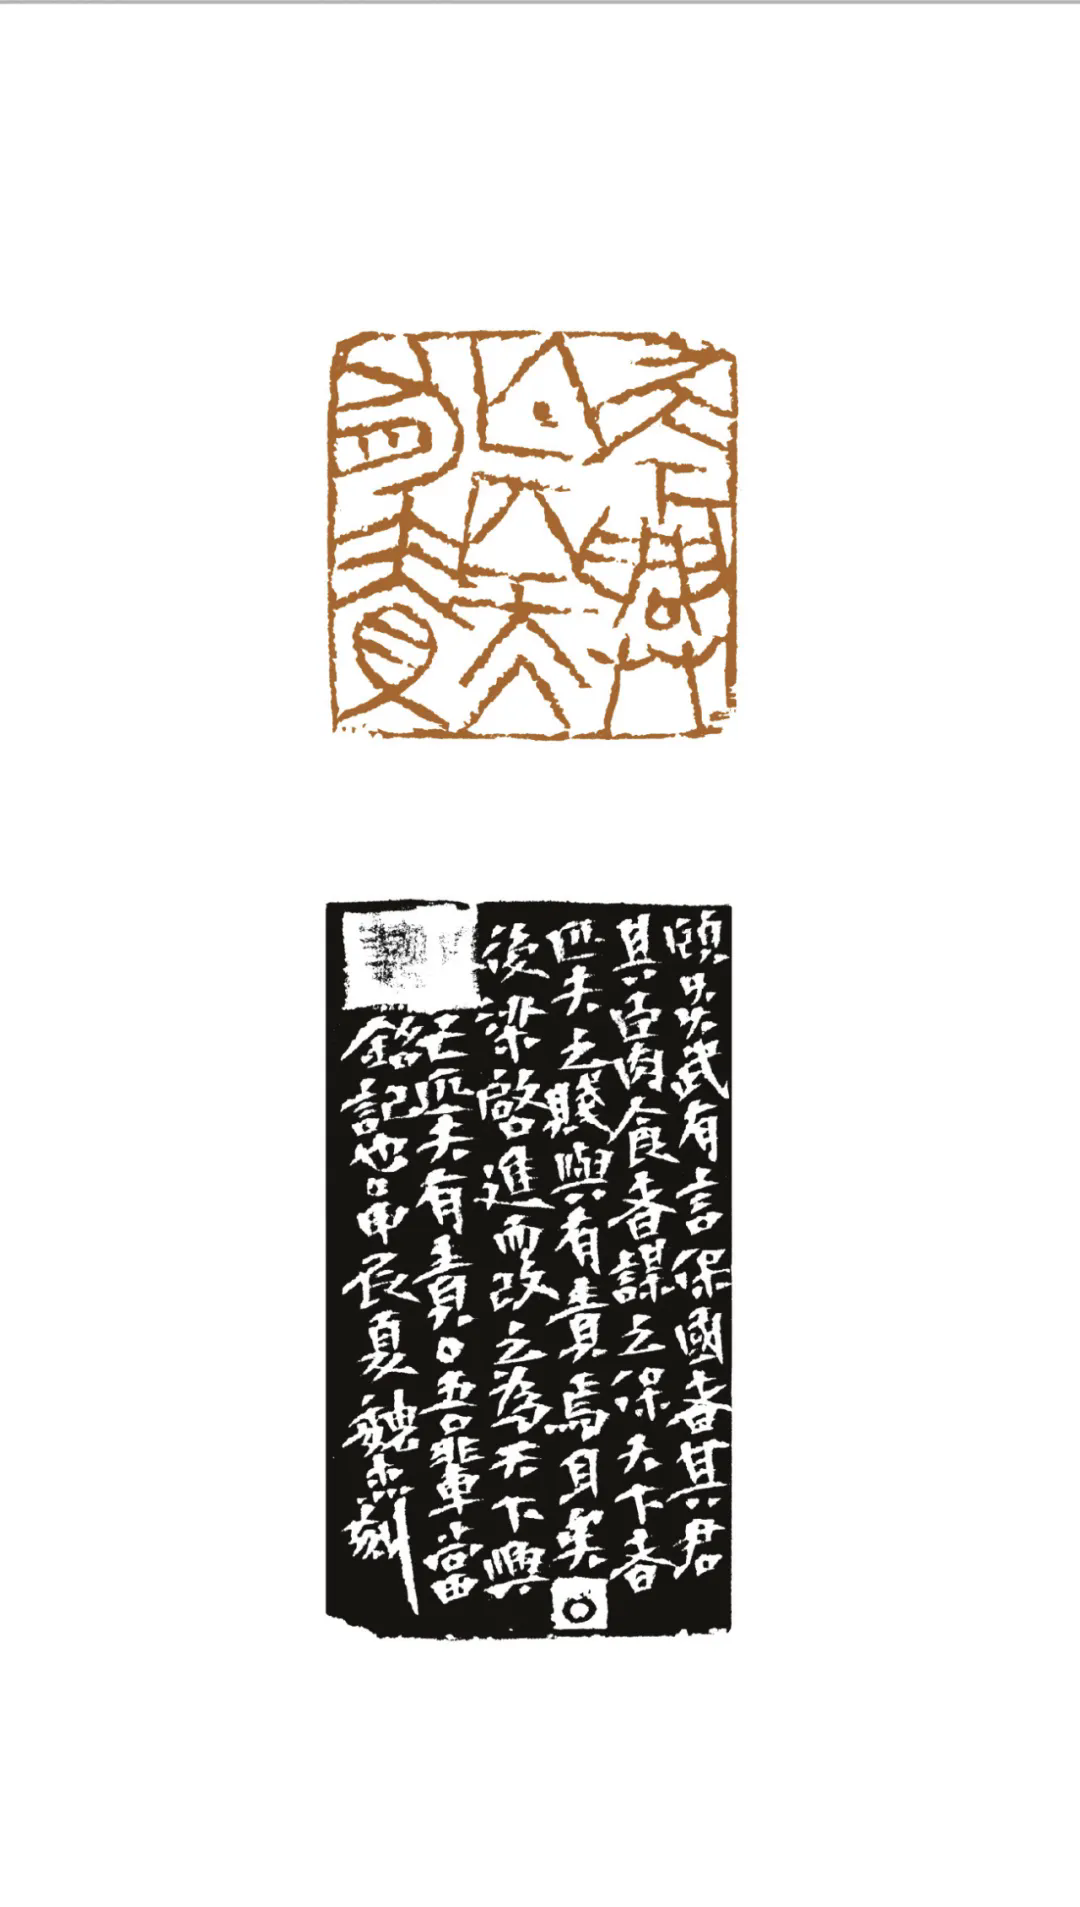 天下興
亡匹夫
有責
顧炎武有言保國者其君
其臣肉食者謀之保天下者
匹夫之賤與有責焉耳矣
後梁啓進而改之為天下興
亡匹夫有責〇吾輩當
銘記也〇甲辰夏魏杰刻